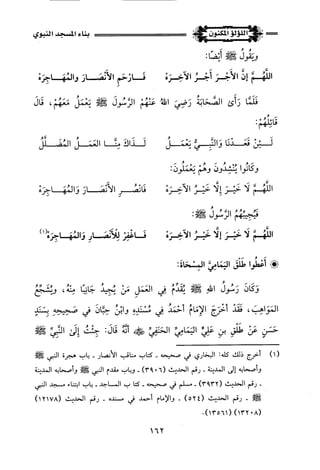 اللؤلؤ المكنون بناء المسجد النبوي
ويَقُولُ ﷺ أَيْضًا:
اللَّهُمَّ إِنَّ الأَجْرَ أَجْرُ الآخِرَهْ فَارْحَمِ الأَنْصَارَ والمُهَاجِرَهْ
فَلَمَّا رَأَى الصَّحَابَةُ رَضِيَ اللهُ عَنْهُمْ الرَّسُولَ ﷺ يَعْمَلُ مَعَهُمْ، قَالَ
قَائِلُهُمْ:
لَئِنْ قَعَدْنَا وَالنَّبِيُّ يَعْمَلُ لَذَاكَ مِنَّا العَمَلُ المُضَلَّلُ
وكَانُوا يُنْشِدُونَ وهُمْ يَعْمَلُونَ:
اللَّهُمَّ لَا خَيْرَ إِلَّا خَيْرُ الآخِرَهْ فَانْصُرِ الأَنْصَارَ وَالمُهَاجِرَهْ
فَيُجِيبُهُمُ الرَّسُولُ ﷺ:
اللَّهُمَّ لَا خَيْرَ إِلَّا خَيْرُ الآخِرَهْ فَاغْفِرْ لِلْأَنْصَارِ وَالمُهَاجِرَهْ(١)
أَعْطُوا طَلْقَ اليَمَامِيَّ المِسْحَاةَ:
وَكَانَ رَسُولُ اللهِ ﷺ يُقَدِّمُ فِي العَمَلِ مَنْ يُجِيدُ جَانِبًا مِنْهُ، ويُشَجِّعُ
المَوَاهِبَ، فَقَدْ أخْرَجَ الإِمَامُ أحْمَدُ فِي مُسْنَدِهِ وابْنُ حِبَّانَ فِي صَحِيحِهِ بِسَنَدٍ
حَسَنٍ عَنْ طَلْقِ بنِ عَلِيٍّ اليَمَامِيِّ الحَنَفِيِّ ﷺ أَنَّهُ قَالَ: جِئْتُ إِلَى النَّبِيِّ ﷺ
(١) أخرج ذلك كله: البخاري في صحيحه ـ كتاب مناقب الأنصار ـ باب هجرة النبي ﷺ
وأصحابه إلى المدينة ـ رقم الحديث (٣٩٠٦) ـ وباب مقدم النبي ﷺ وأصحابه المدينة
ـ رقم الحديث (٣٩٣٢) ـ مسلم في صحيحه ـ كتاب المساجد ـ باب ابتناء مسجد النبي
ﷺ ـ رقم الحديث (٥٢٤) ـ والإمام أحمد في مسنده ـ رقم الحديث (١٢١٧٨)
(١٣٢٠٨) (١٣٥٦١).
١٦٢